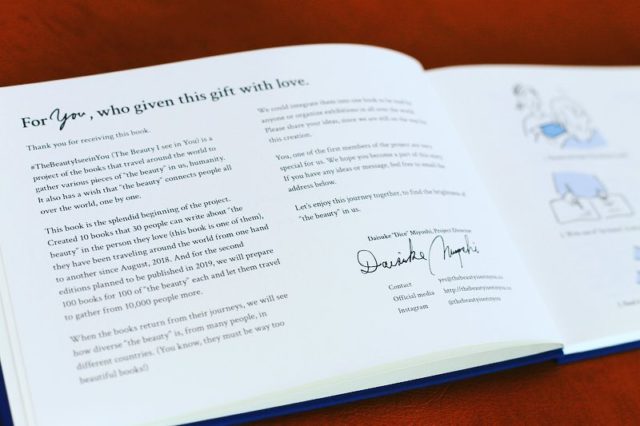 For You, who given this gift with love.
Thank you for receiving this book.
#TheBeautyIseeinYou (The Beauty I see in You) is a
project of the books that travel around the world to
gather various pieces of "the beauty" in us, humanity.
It also has a wish that "the beauty" connects people all
over the world, one by one.
This book is the splendid beginning of the project.
Created 10 books that 30 people can write about "the
beauty" in the person they love (this book is one of them),
they have been traveling around the world from one hand
to another since August, 2018. And for the second
editions planned to be published in 2019, we will prepare
100 books for 100 of "the beauty" each and let them travel
to gather from 10,000 people more.
When the books return from their journeys, we will see
how diverse "the beauty" is, from many people, in
different countries. (You know, they must be way too
beautiful books!)
We could integrate them into one book to be read by
anyone or organize exhibitions in all over the world.
Please share your ideas, since we are still on the way for
this creation.
You, one of the first members of the project are very
special for us. We hope you become a part of this story.
If you have any ideas or message, feel free to email the
address below.
Let's enjoy this journey together, to find the brightness of
"the beauty" in us.
Daisuke "Dice" Miyoshi, Project Director
Daisuke Miyoshi
Contact
Official media
Instagram